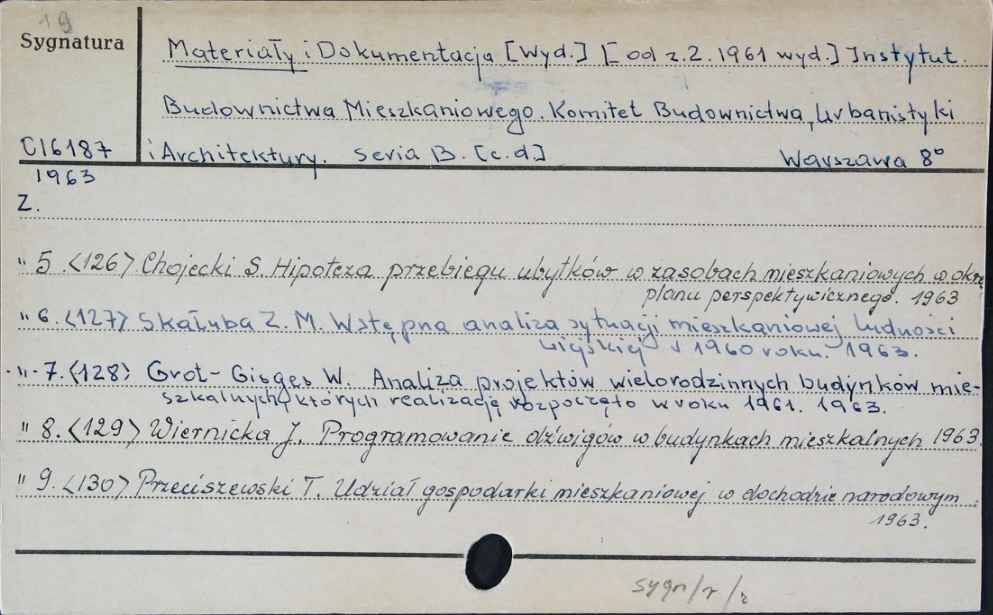 19
Sygnatura
Materiały i Dokumentacja [Wyd.] [od z.2. 1961 wyd.] Instytut
Budownictwa Mieszkaniowego. Komitet Budownictwa, Urbanistyki
C16187 i Architektury. Seria B. [c.d.] Warszawa 8º
1963
Z.
" 5. <126> Chojecki S. Hipoteza przebiegu ubytków w zasobach mieszkaniowych w okre
planu perspektywicznego. 1963
" 6. <127> Skałuba Z. M. Wstępna analiza sytuacji mieszkaniowej ludności
wiejskiej w 1960 roku. 1963.
" 7. <128> Grot-Gisges W. Analiza projektów wielorodzinnych budynków mie-
szkalnych, których realizację rozpoczęto w roku 1961. 1963.
" 8. <129> Wiernicka J. Programowanie dźwigów w budynkach mieszkalnych 1963.
" 9. <130> Przeciszewski T. Udział gospodarki mieszkaniowej w dochodzie narodowym.
1963.
sygn/r/r